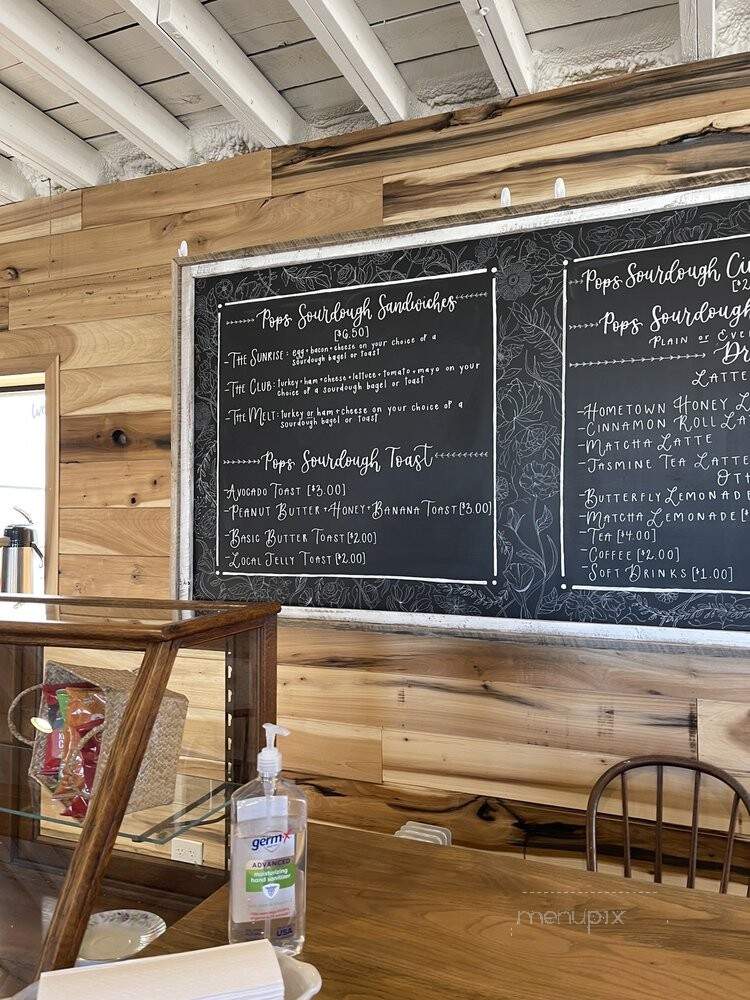 Pops Sourdough Sandwiches
[$6.50]
-The Sunrise: egg+bacon+cheese on your choice of a
sourdough bagel or toast
-The Club: turkey+ham+cheese+lettuce+tomato+mayo on your
choice of a sourdough bagel or toast
-The Melt: turkey or ham+cheese on your choice of a
sourdough bagel or toast
Pops Sourdough Toast
-Avocado Toast [$3.00]
-Peanut Butter+Honey+Banana Toast [$3.00]
-Basic Butter Toast [$2.00]
-Local Jelly Toast [$2.00]
Pops Sourdough Ci
[$2
Pops Sourdough
Plain or Eve
D
Latte
-Hometown Honey L
-Cinnamon Roll La
-Matcha Latte
-Jasmine Tea Latte
Oth
-Butterfly Lemonad
-Matcha Lemonade [$
-Tea [$4.00]
-Coffee [$2.00]
-Soft Drinks [$1.00]
germ-x
ADVANCED
moisturizing
hand sanitizer
USA
menupix